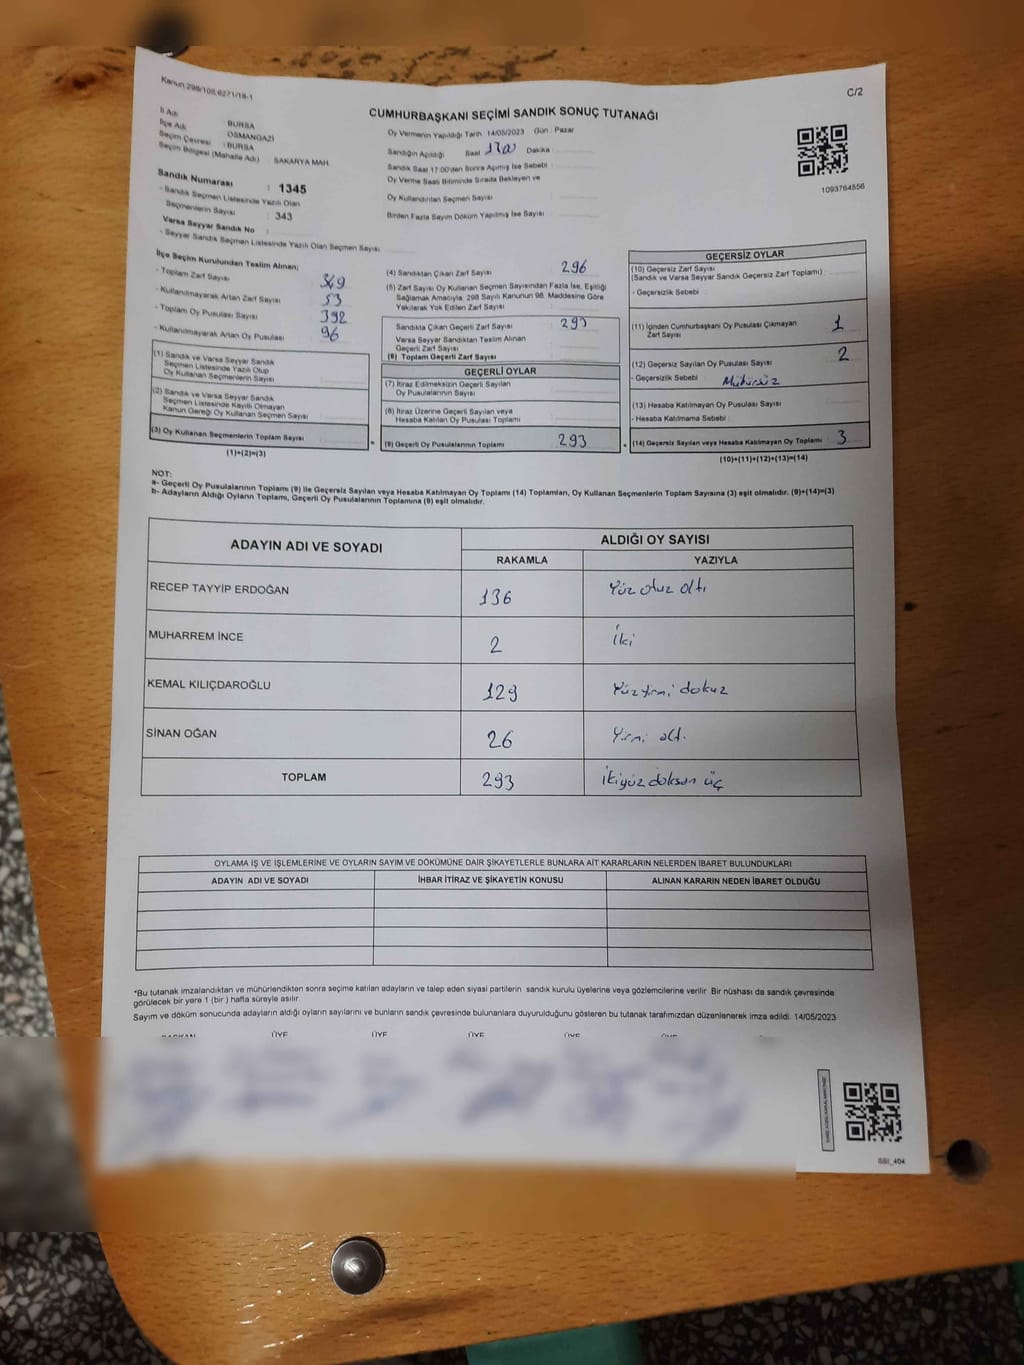 Kanun:298/105,6271/18-1
C/2
CUMHURBAŞKANI SEÇİMİ SANDIK SONUÇ TUTANAĞI
İl Adı : BURSA
İlçe Adı : OSMANGAZİ
Seçim Çevresi : BURSA
Seçim Bölgesi (Mahalle Adı) : SAKARYA MAH.
Sandık Numarası : 1345
- Sandık Seçmen Listesinde Yazılı Olan
Seçmenlerin Sayısı : 343
Varsa Seyyar Sandık No :
- Seyyar Sandık Seçmen Listesinde Yazılı Olan Seçmen Sayısı
Oy Vermenin Yapıldığı Tarih : 14/05/2023 Gün : Pazar
Sandığın Açıldığı Saat Dakika
Sandık Saat 17:00'den Sonra Açılmış İse Sebebi :
Oy Verme Saati Bitiminde Sırada Bekleyen ve
Oy Kullandırılan Seçmen Sayısı
Birden Fazla Sayım Döküm Yapılmış İse Sayısı
1093764556
İlçe Seçim Kurulundan Teslim Alınan;
- Toplam Zarf Sayısı 349
- Kullanılmayarak Artan Zarf Sayısı 53
- Toplam Oy Pusulası Sayısı 392
- Kullanılmayarak Artan Oy Pusulası 96
(1) Sandık ve Varsa Seyyar Sandık
Seçmen Listesinde Yazılı Olup
Oy Kullanan Seçmenlerin Sayısı
(2) Sandık ve Varsa Seyyar Sandık
Seçmen Listesinde Kayıtlı Olmayan
Kanun Gereği Oy Kullanan Seçmen Sayısı
(3) Oy Kullanan Seçmenlerin Toplam Sayısı
(1)+(2)=(3)
(4) Sandıktan Çıkan Zarf Sayısı 296
(5) Zarf Sayısı Oy Kullanan Seçmen Sayısından Fazla İse, Eşitliği
Sağlamak Amacıyla, 298 Sayılı Kanunun 98. Maddesine Göre
Yakılarak Yok Edilen Zarf Sayısı
Sandıkta Çıkan Geçerli Zarf Sayısı 293
Varsa Seyyar Sandıktan Teslim Alınan
Geçerli Zarf Sayısı
(6) Toplam Geçerli Zarf Sayısı
GEÇERLİ OYLAR
(7) İtiraz Edilmeksizin Geçerli Sayılan
Oy Pusulasının Sayısı
(8) İtiraz Üzerine Geçerli Sayılan veya
Hesaba Katılan Oy Pusulası Toplamı
(9) Geçerli Oy Pusulalarının Toplamı 293
GEÇERSİZ OYLAR
(10) Geçersiz Zarf Sayısı
(Sandık ve Varsa Seyyar Sandık Geçersiz Zarf Toplamı) :
- Geçersizlik Sebebi :
(11) İçinden Cumhurbaşkanı Oy Pusulası Çıkmayan
Zarf Sayısı 1
(12) Geçersiz Sayılan Oy Pusulası Sayısı 2
- Geçersizlik Sebebi : Mühürsüz
(13) Hesaba Katılmayan Oy Pusulası Sayısı
- Hesaba Katılmama Sebebi :
(14) Geçersiz Sayılan veya Hesaba Katılmayan Oy Toplamı 3
(10)+(11)+(12)+(13)=(14)
NOT:
a- Geçerli Oy Pusulalarının Toplamı (9) ile Geçersiz Sayılan veya Hesaba Katılmayan Oy Toplamı (14) Toplamları, Oy Kullanan Seçmenlerin Toplam Sayısına (3) eşit olmalıdır. (9)+(14)=(3)
b- Adayların Aldığı Oyların Toplamı, Geçerli Oy Pusulalarının Toplamına (9) eşit olmalıdır.
ADAYIN ADI VE SOYADI
ALDIĞI OY SAYISI
RAKAMLA YAZIYLA
RECEP TAYYİP ERDOĞAN 136 Yüz otuz altı
MUHARREM İNCE 2 iki
KEMAL KILIÇDAROĞLU 129 Yüzyirmi dokuz
SİNAN OĞAN 26 Yirmi altı
TOPLAM 293 ikiyüz doksan üç
OYLAMA İŞ VE İŞLEMLERİNE VE OYLARIN SAYIM VE DÖKÜMÜNE DAİR ŞİKAYETLERLE BUNLARA AİT KARARLARIN NELERDEN İBARET BULUNDUKLARI
ADAYIN ADI VE SOYADI İHBAR İTİRAZ VE ŞİKAYETİN KONUSU ALINAN KARARIN NEDEN İBARET OLDUĞU
*Bu tutanak imzalandıktan ve mühürlendikten sonra seçime katılan adayların ve talep eden siyasi partilerin sandık kurulu üyelerine veya gözlemcilerine verilir. Bir nüshası da sandık çevresinde
görülecek bir yere 1 (bir ) hafta süreyle asılır.
Sayım ve döküm sonucunda adayların aldığı oyların sayılarını ve bunların sandık çevresinde bulunanlara duyurulduğunu gösteren bu tutanak tarafımızdan düzenlenerek imza edildi. 14/05/2023
BAŞKAN ÜYE ÜYE ÜYE ÜYE ÜYE
SSI_404